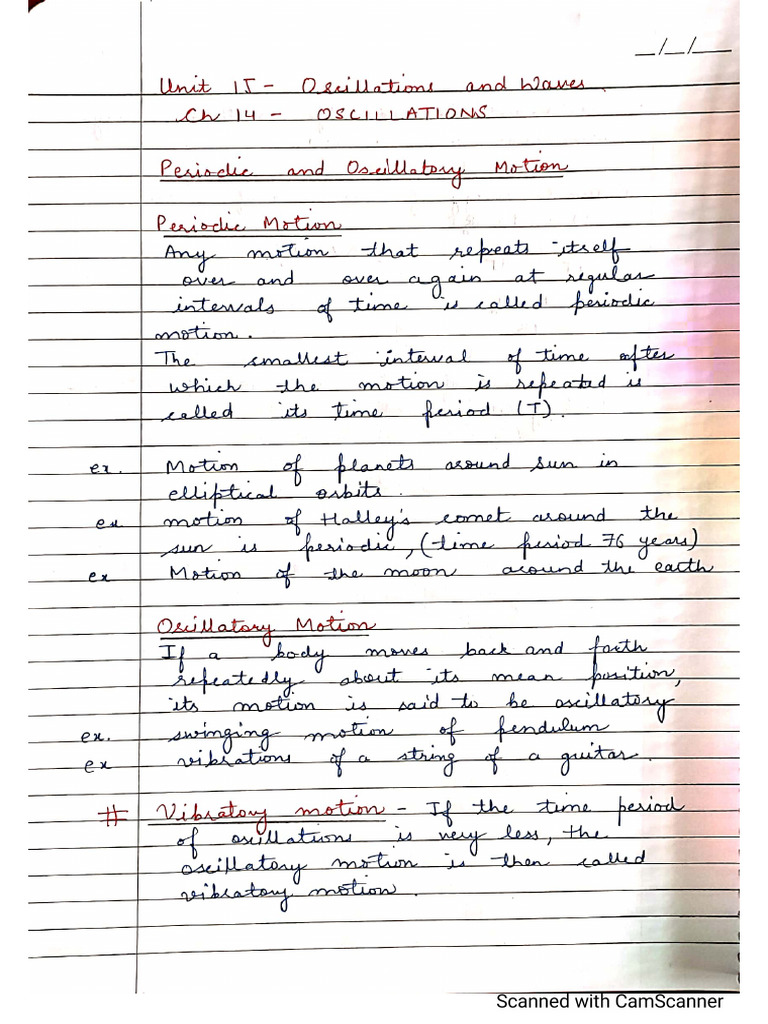 _/_/__
Unit 15 - Oscillations and Waves.
Ch 14 - OSCILLATIONS
Periodic and Oscillatory Motion
Periodic Motion
Any motion that repeats itself
over and over again at regular
intervals of time is called periodic
motion.
The smallest interval of time after
which the motion is repeated is
called its time period (T).
ex. Motion of planets around sun in
elliptical orbits.
ex motion of Halley's comet around the
sun is periodic, (time period 76 years)
ex Motion of the moon around the earth
Oscillatory Motion
If a body moves back and forth
repeatedly about its mean position,
its motion is said to be oscillatory
ex. swinging motion of pendulum
ex vibrations of a string of a guitar.
# Vibratory motion - If the time period
of oscillations is very less, the
oscillatory motion is then called
vibratory motion.
Scanned with CamScanner